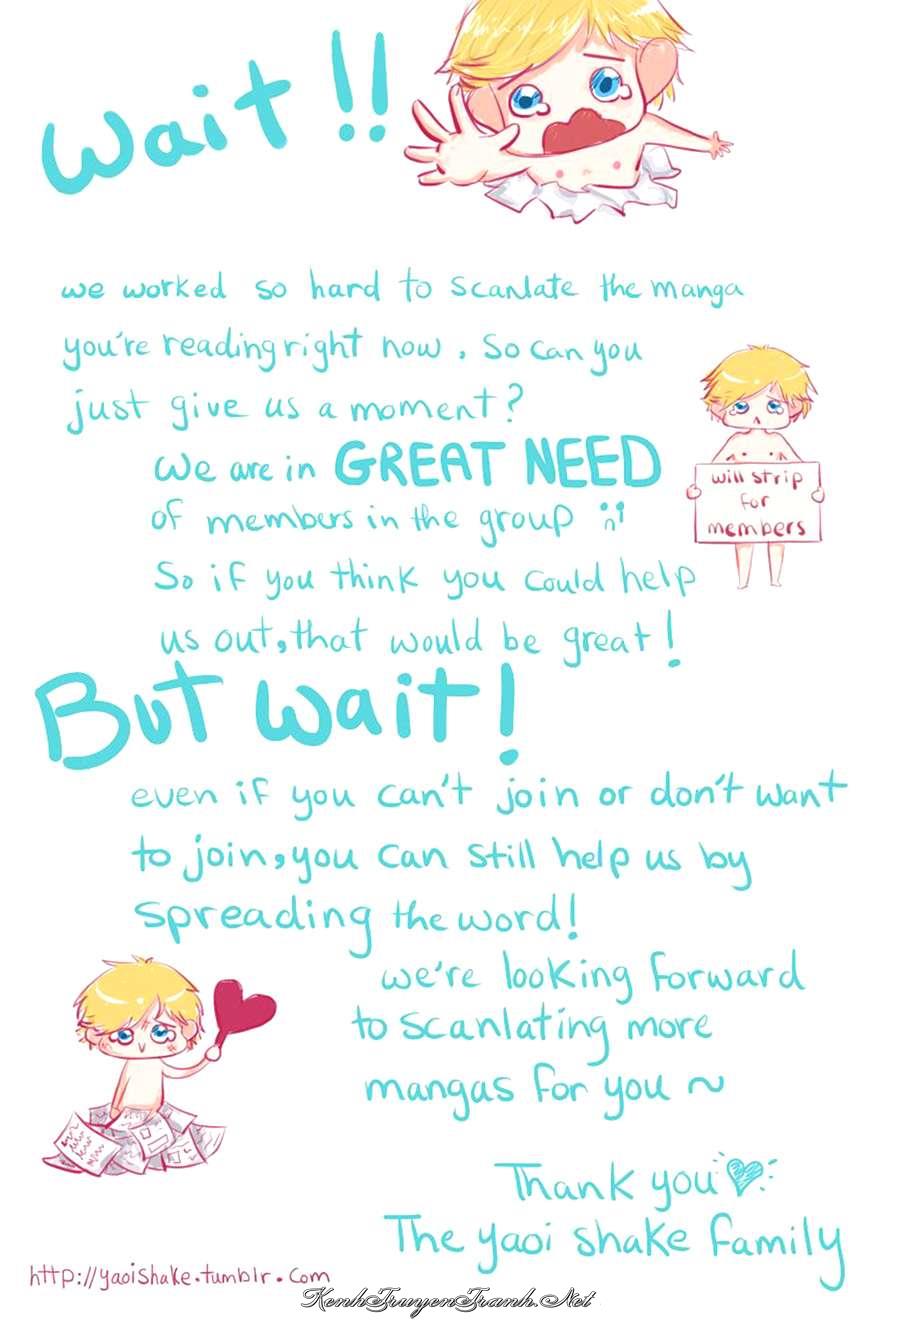 Wait!!
we worked so hard to scanlate the manga
you're reading right now. So can you
just give us a moment?
we are in GREAT NEED
of members in the group
will strip
for
members
So if you think you could help
us out, that would be great!
But wait!
even if you can't join or don't want
to join, you can still help us by
spreading the word!
we're looking forward
to scanlating more
mangas for you ~
Thank you
The yaoi shake family
http://yaoishake.tumblr.com
KenhTruyenTranh.Net